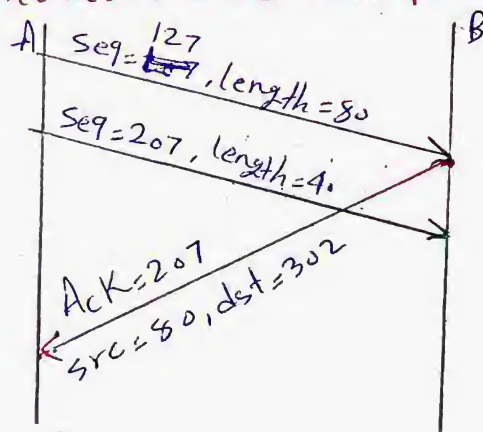 A B
127
Seq=127, length=80
Seq=207, length=40
Ack=207
src=80, dst=302